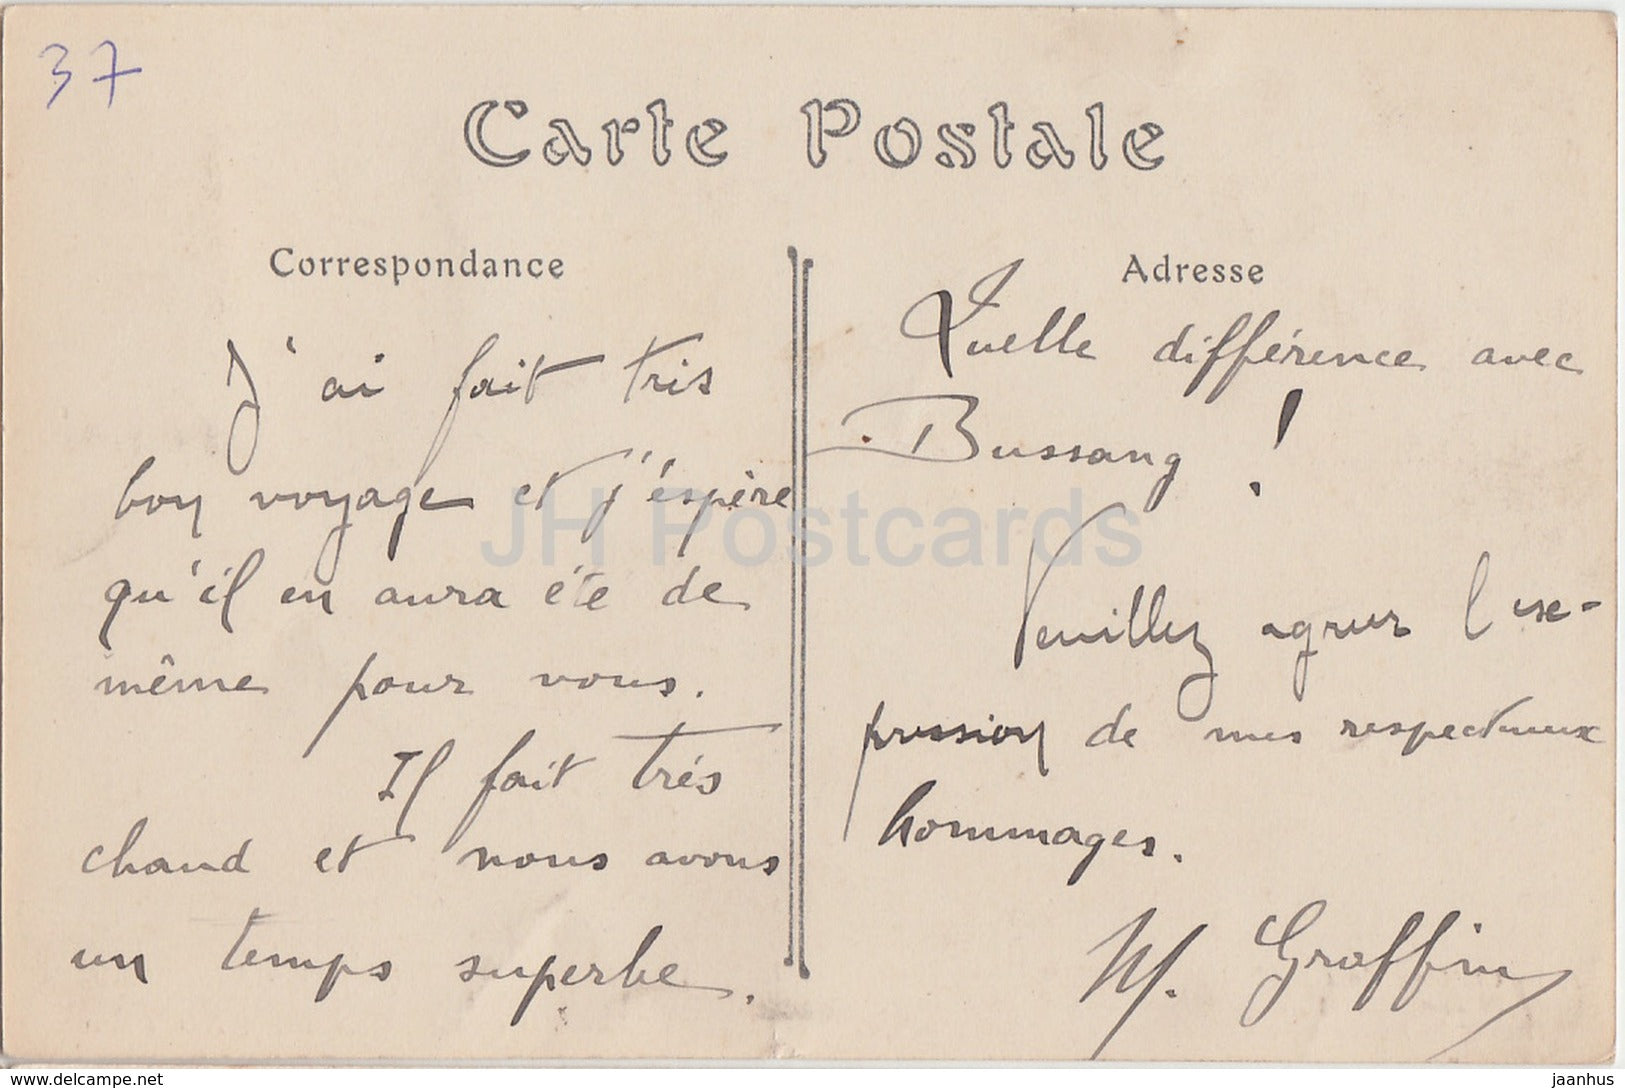 37
Carte Postale
Correspondance
J'ai fait très
bon voyage et j'espère
qu'il en aura été de
même pour vous.
Il fait très
chaud et nous avons
un temps superbe.
Adresse
Quelle différence avec
Bussang !
Veuillez agréer l'ex-
pression de mes respectueux
hommages.
M. Graffin
JH Postcards
delcampe.net
jaanhus